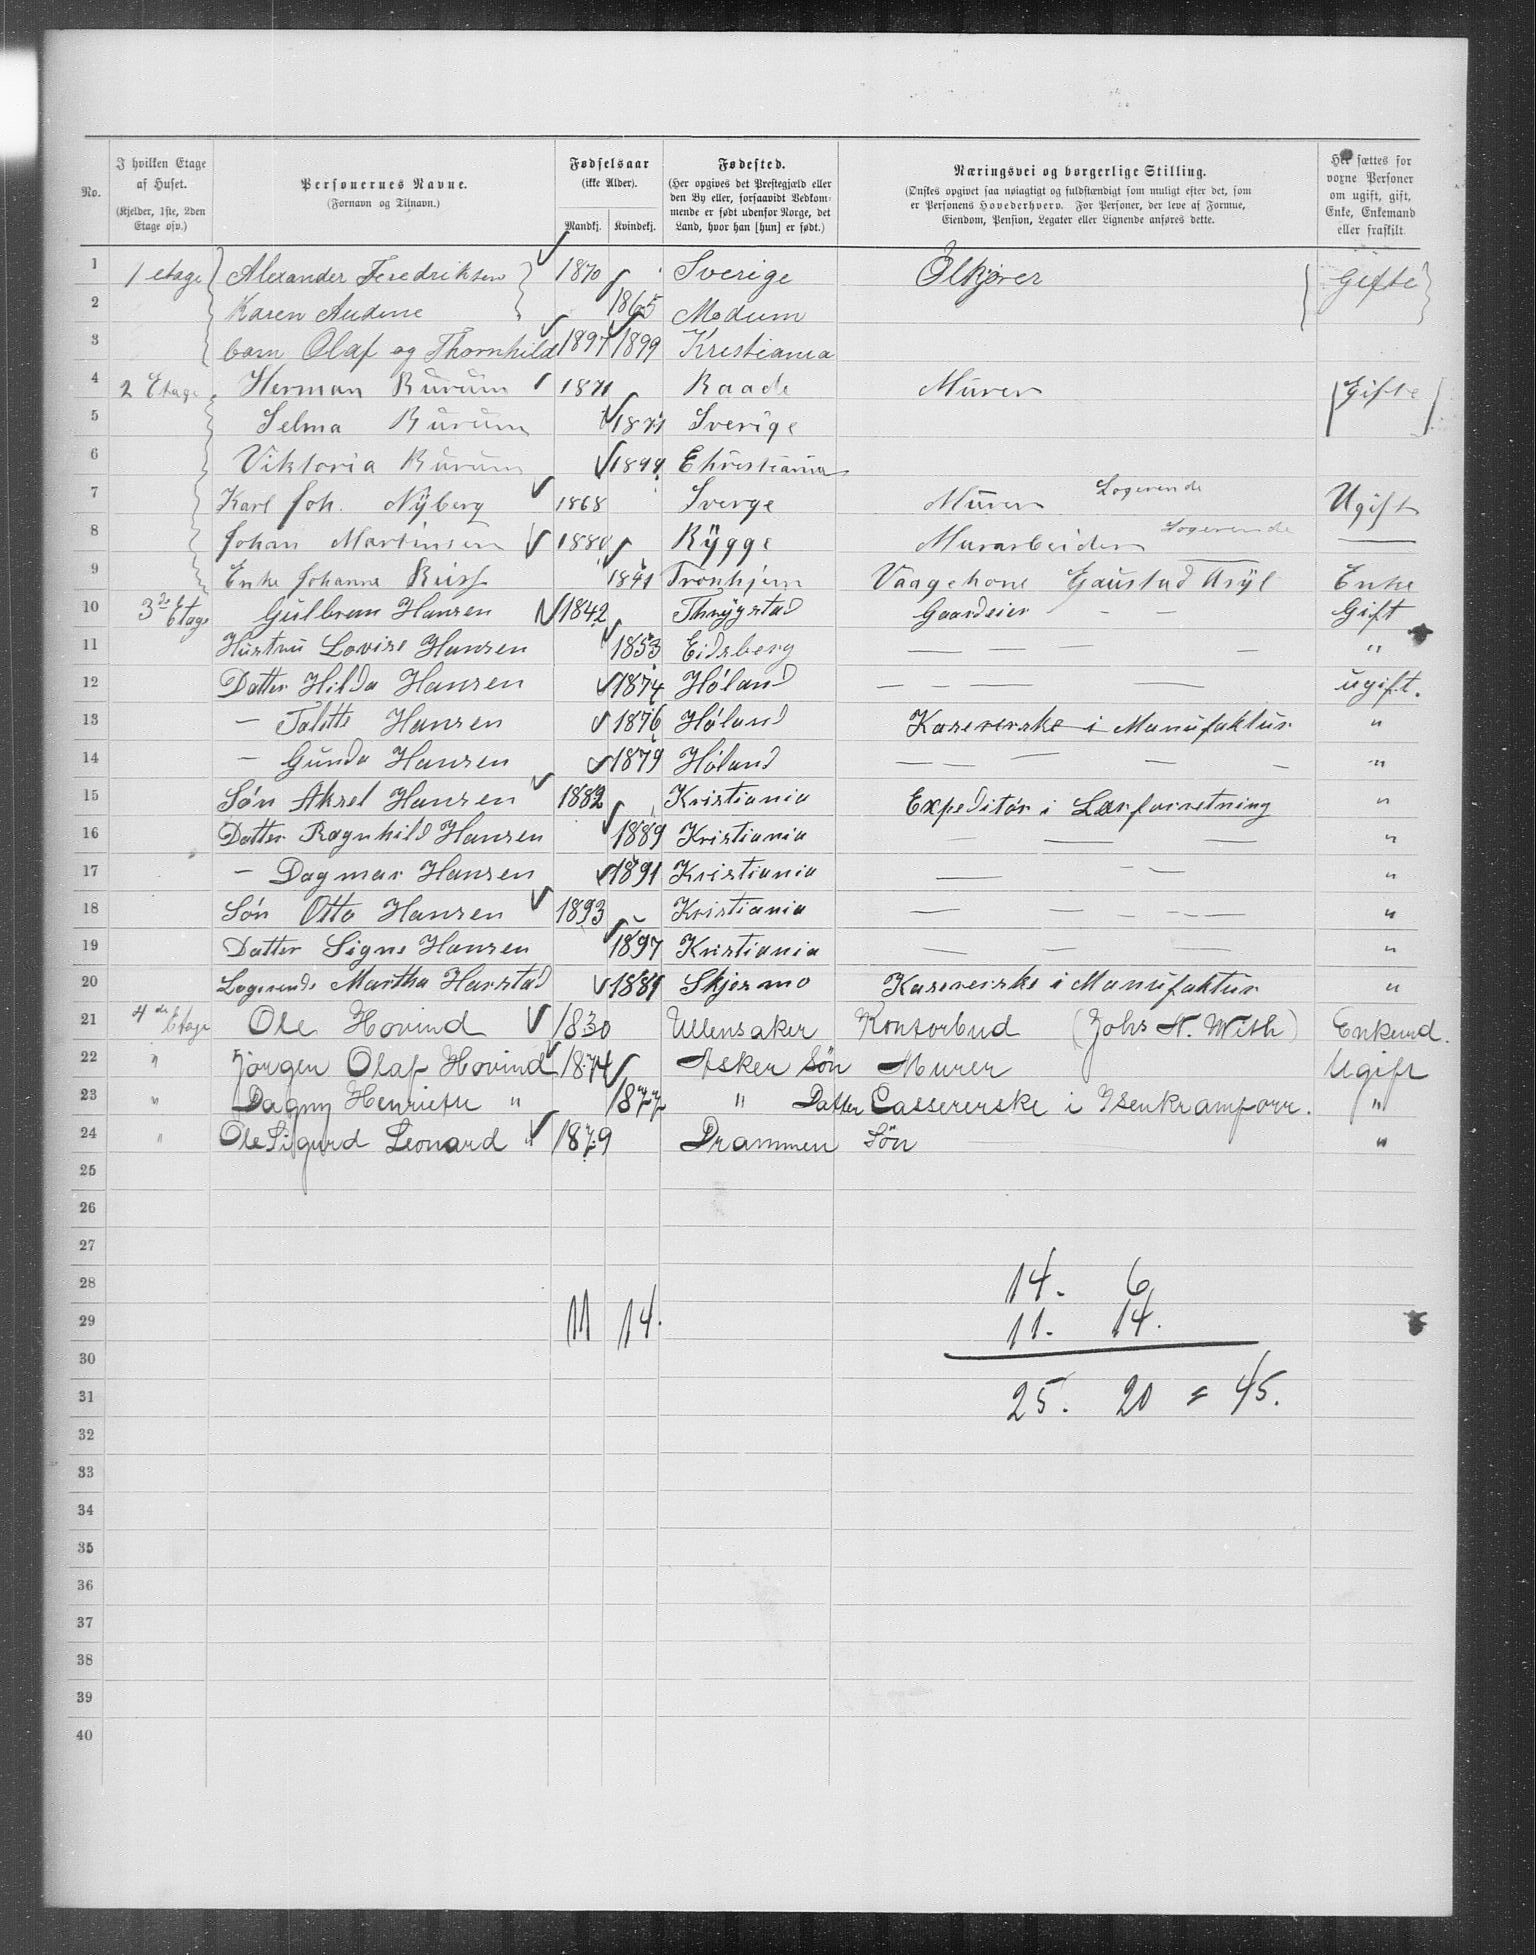 No.
I hvilken Etage af Huset.
(Kjelder, 1ste, 2den Etage osv.)
Personernes Navne.
(Fornavn og Tilnavn.)
Fødselsaar
(ikke Alder).
Mandkj. Kvindekj.
Fødested.
(Her opgives det Prestegjæld eller den By eller, forsaavidt Vedkommende er født udenfor Norge, det Land, hvor han [hun] er født.)
Næringsvei og borgerlige Stilling.
(Ønskes opgivet saa nøiagtigt og fuldstændigt som muligt efter det, som er Personens Hovederhverv. For Personer, der leve af Formue, Eiendom, Pension, Legater eller Lignende anføres dette.
Her sættes for voxne Personer om ugift, gift, Enke, Enkemand eller fraskilt.
1 1 etage Alexander Feredriksen 1870 Sverige Ølkjører Gifte
2 Karen Audine 1865 Modum
3 barn Olaf og Thornhild 1897 1899 Kristiania
4 2 Etage Herman Burum 1871 Raade Murer Gifte
5 Selma Burum 1871 Sverige
6 Viktoria Burum 1899 Christiania
7 Karl Joh. Nÿberg 1868 Sverge Murer Logerende Ugift
8 Johan Martinsen 1880 Rÿgge Murarbeider Logerende —
9 Enke Johanne 1841 Tronhjem Vaagekone Gaustad Asÿl Enke
10 3de Etage Gulbran Hansen 1842 Thrÿgstad Gaardeier — — Gift
11 Hustru Lovise Hansen 1853 Eidsberg — — — — "
12 Datter Hilda Hansen 1874 Høland — — — — ugift.
13 — Talette Hansen 1876 Høland Kasererske i Manufaktur "
14 — Gunda Hansen 1879 Høland — — — — — "
15 Søn Aksel Hansen 1882 Kristiania Expeditør i Lærforretning "
16 Datter Ragnhild Hansen 1889 Kristiania — — "
17 — Dagmar Hansen 1891 Kristiania — — "
18 Søn Otto Hansen 1893 Kristiania — — — — "
19 Datter Signe Hansen 1897 Kristiania — — — "
20 Logerende Martha Harstad 1881 Skjermo Kasererske i Manufaktur "
21 4de Etage Ole Hovind 1830 Ullensaker Kontorbud (Johs N. With) Enkemd.
22 " Jørgen Olaf Hovind 1874 Asker Søn Murer Ugift
23 " Dagny Henriette " 1877 " Datter Cassererske i Isenkramforr. "
24 " Ole Sigurd Leonard " 1879 Drammen Søn "
25
26
27
28 14. 6
29 11 14. 11. 14.
30
31 25. 20 = 45.
32
33
34
35
36
37
38
39
40